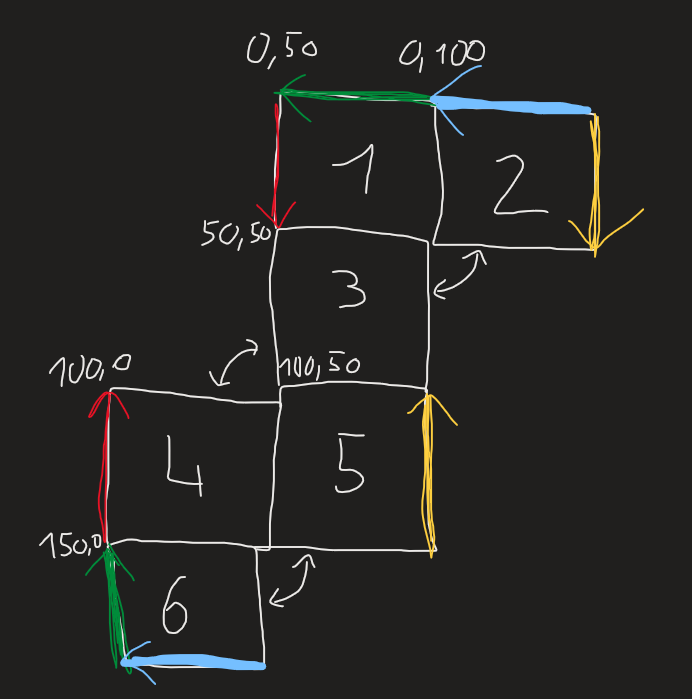 0,50 0,100
1 2
50,50
3
100,0 100,50
4 5
150,0
6